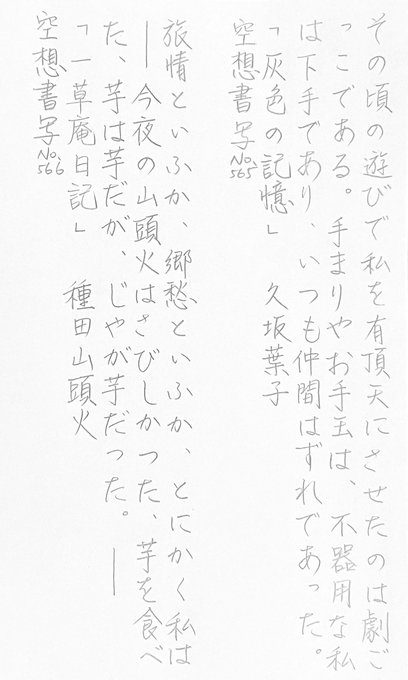 その頃の遊びで私を有頂天にさせたのは劇ご
っこである。手まりやお手玉は、不器用な私
は下手であり、いつも仲間はずれであった。
「灰色の記憶」 久坂葉子
空想書写№565
旅情といふか、郷愁といふか、とにかく私は
―今夜の山頭火はさびしかつた、芋を食べ
た、芋は芋だが、じやが芋だつた。―
「一草庵日記」 種田山頭火
空想書写№566